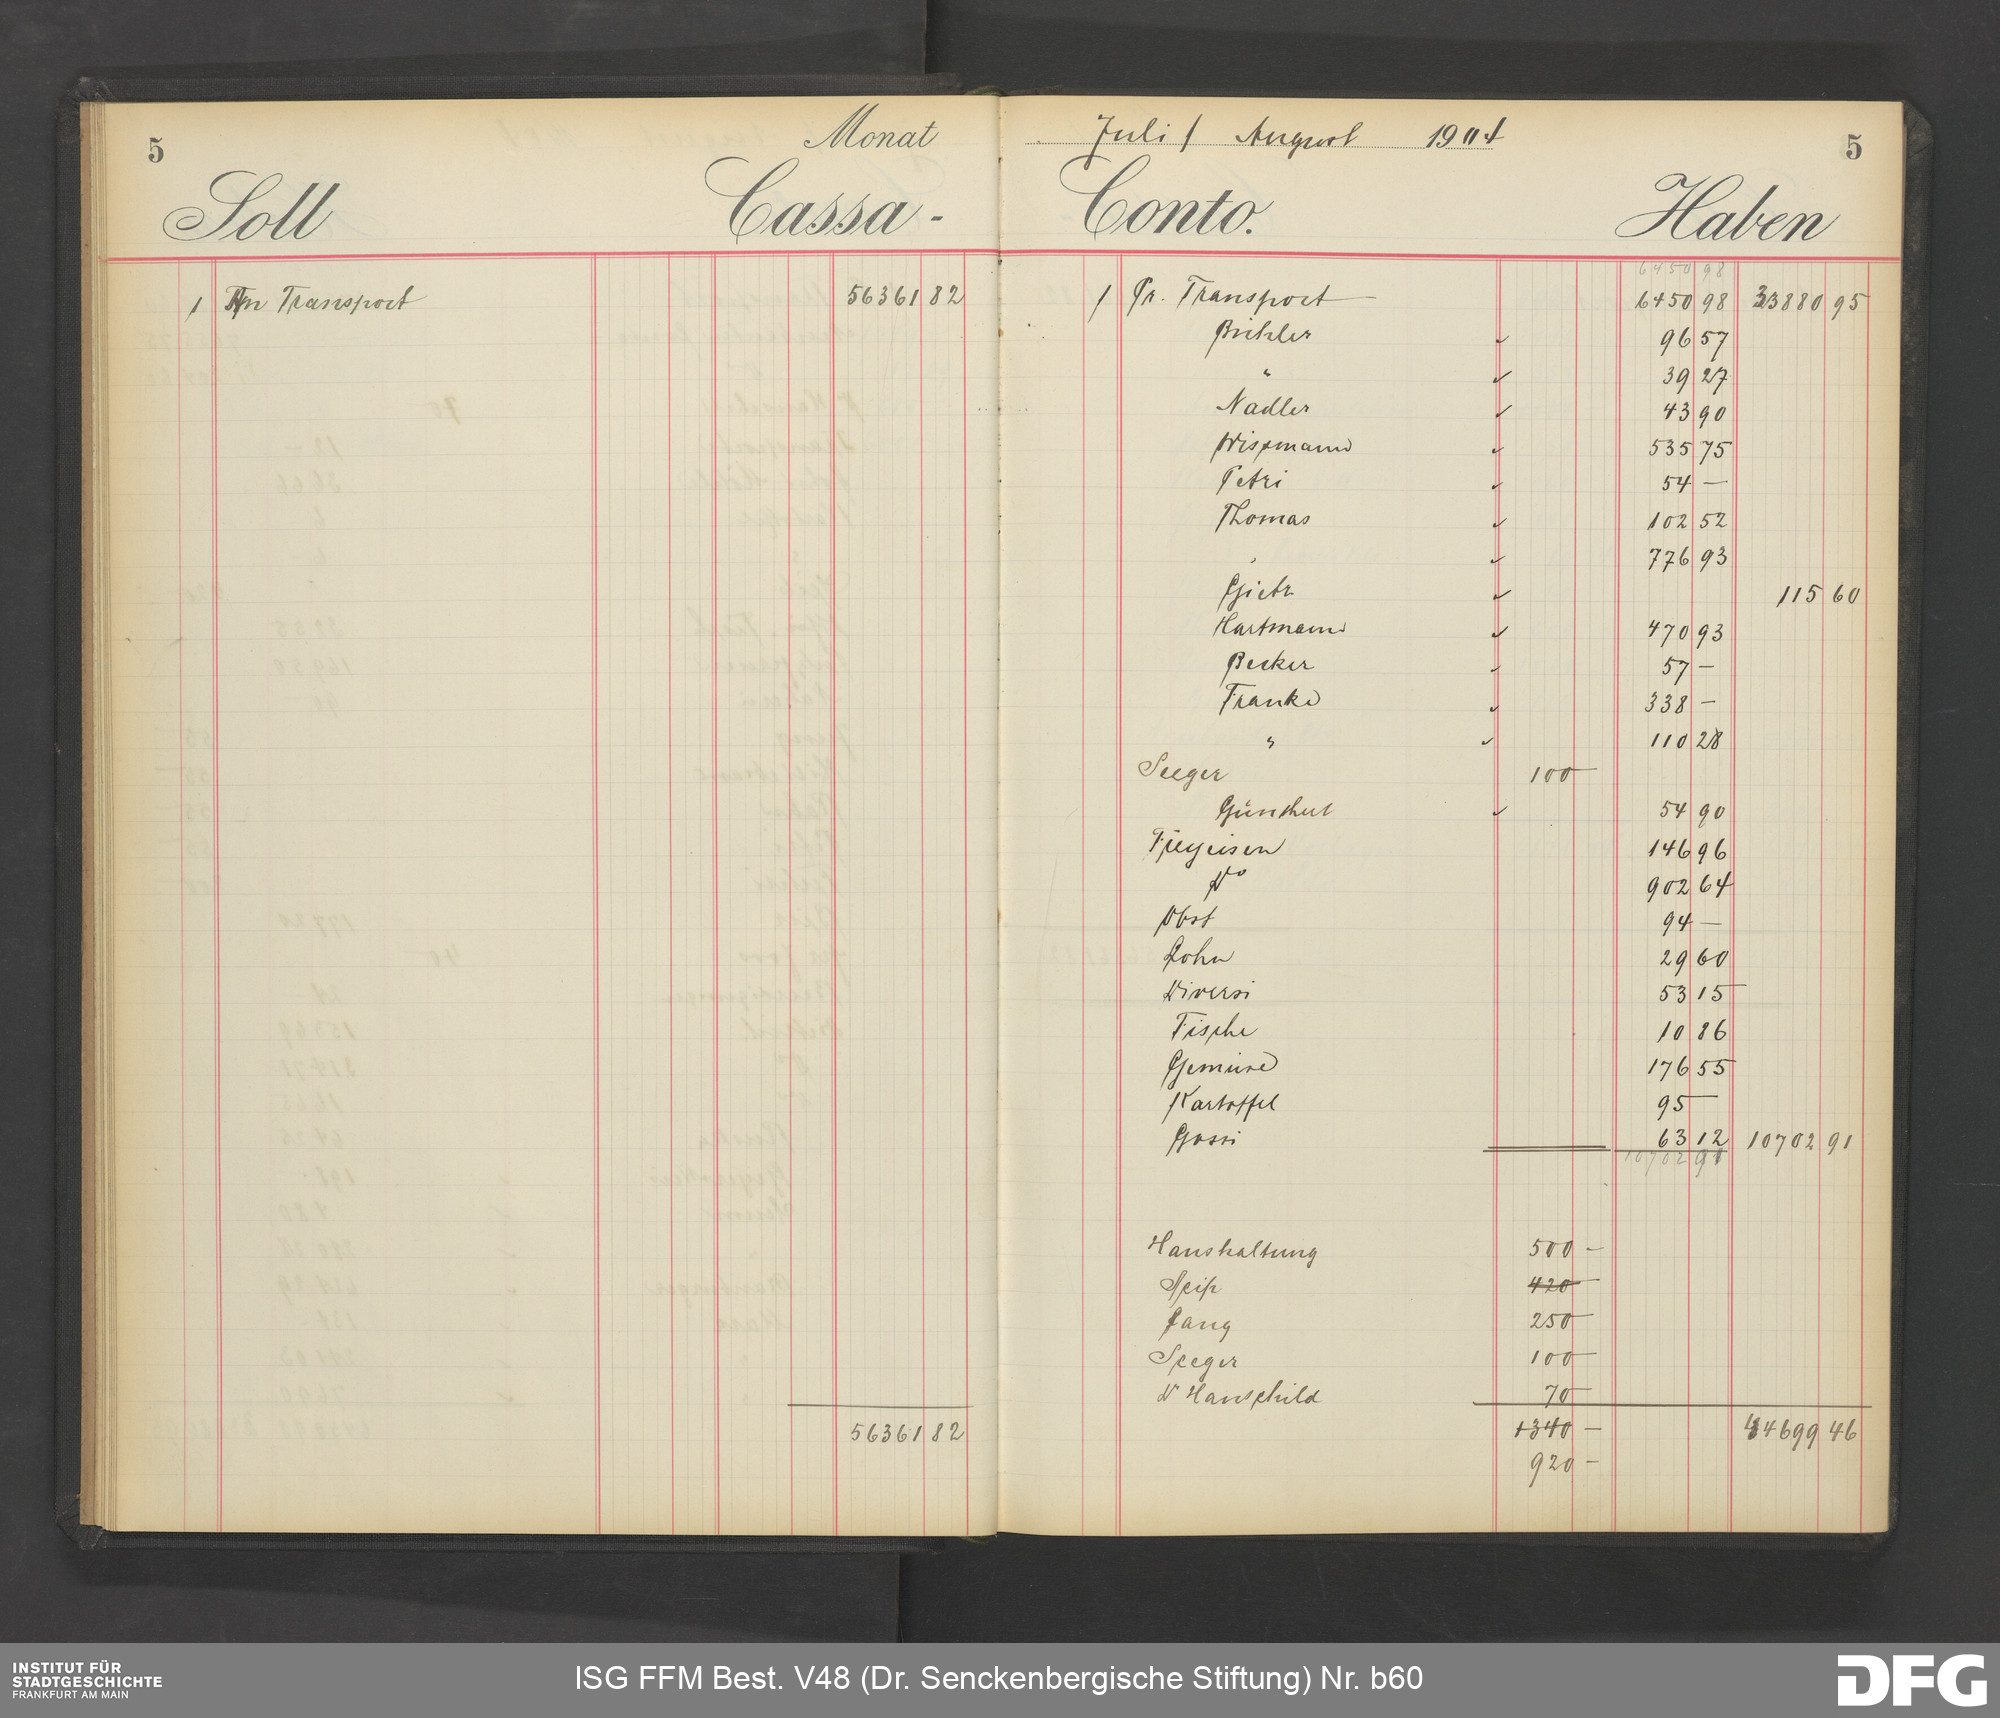 5 Monat Juli / August 1904 5
Soll Cassa- Conto. Haben
6450 98
1 An Transport 56361 82
1 Pr. Transport 6450 98 33880 95
Bickler ✓ 96 57
" ✓ 39 27
Nadler ✓ 43 90
Wissmann ✓ 535 75
Petri ✓ 54 —
Thomas ✓ 102 52
" ✓ 776 93
Gietz ✓ 115 60
Hartmann ✓ 470 93
Becker ✓ 57 —
Franke ✓ 338 —
" ✓ 110 28
Seeger 100 —
Günthert ✓ 54 90
146 96
Do 902 64
Obst 94 —
Lohn 29 60
Diversi 53 15
Fische 10 86
Gemüse 176 55
Kartoffel 95 —
Gossi 63 12 10702 91
10702 91
Haushaltung 500 —
Reiß 420 —
Lang 250 —
Seeger 100 —
Dr Hanschild 70 —
56361 82
1340 — 44699 46
920 —
INSTITUT FÜR
STADTGESCHICHTE
FRANKFURT AM MAIN
ISG FFM Best. V48 (Dr. Senckenbergische Stiftung) Nr. b60
DFG